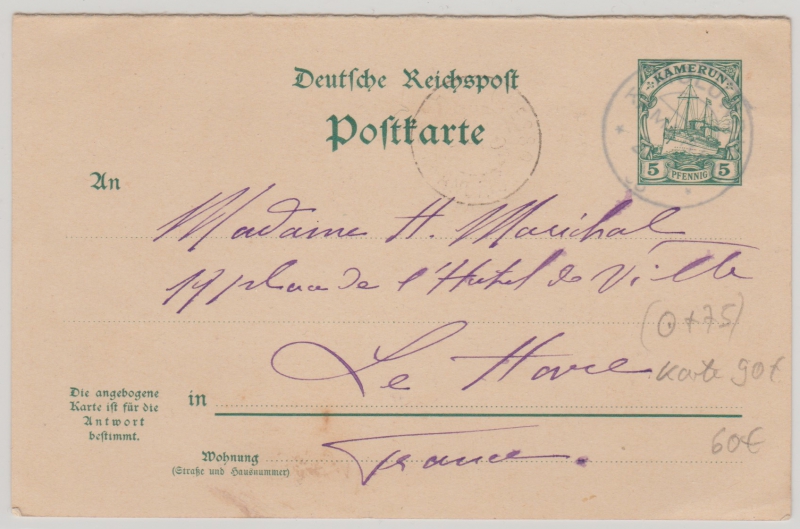 Deutsche Reichspost
KAMERUN
Postkarte
5 PFENNIG 5
An
Madame H. Maréchal
17 place de l'Hôtel de Ville
(⊙ + 75)
Le Havre
Karte 90€
Die angebogene
Karte ist für die
Antwort
bestimmt.
in
60€
Wohnung
(Straße und Hausnummer)
France.